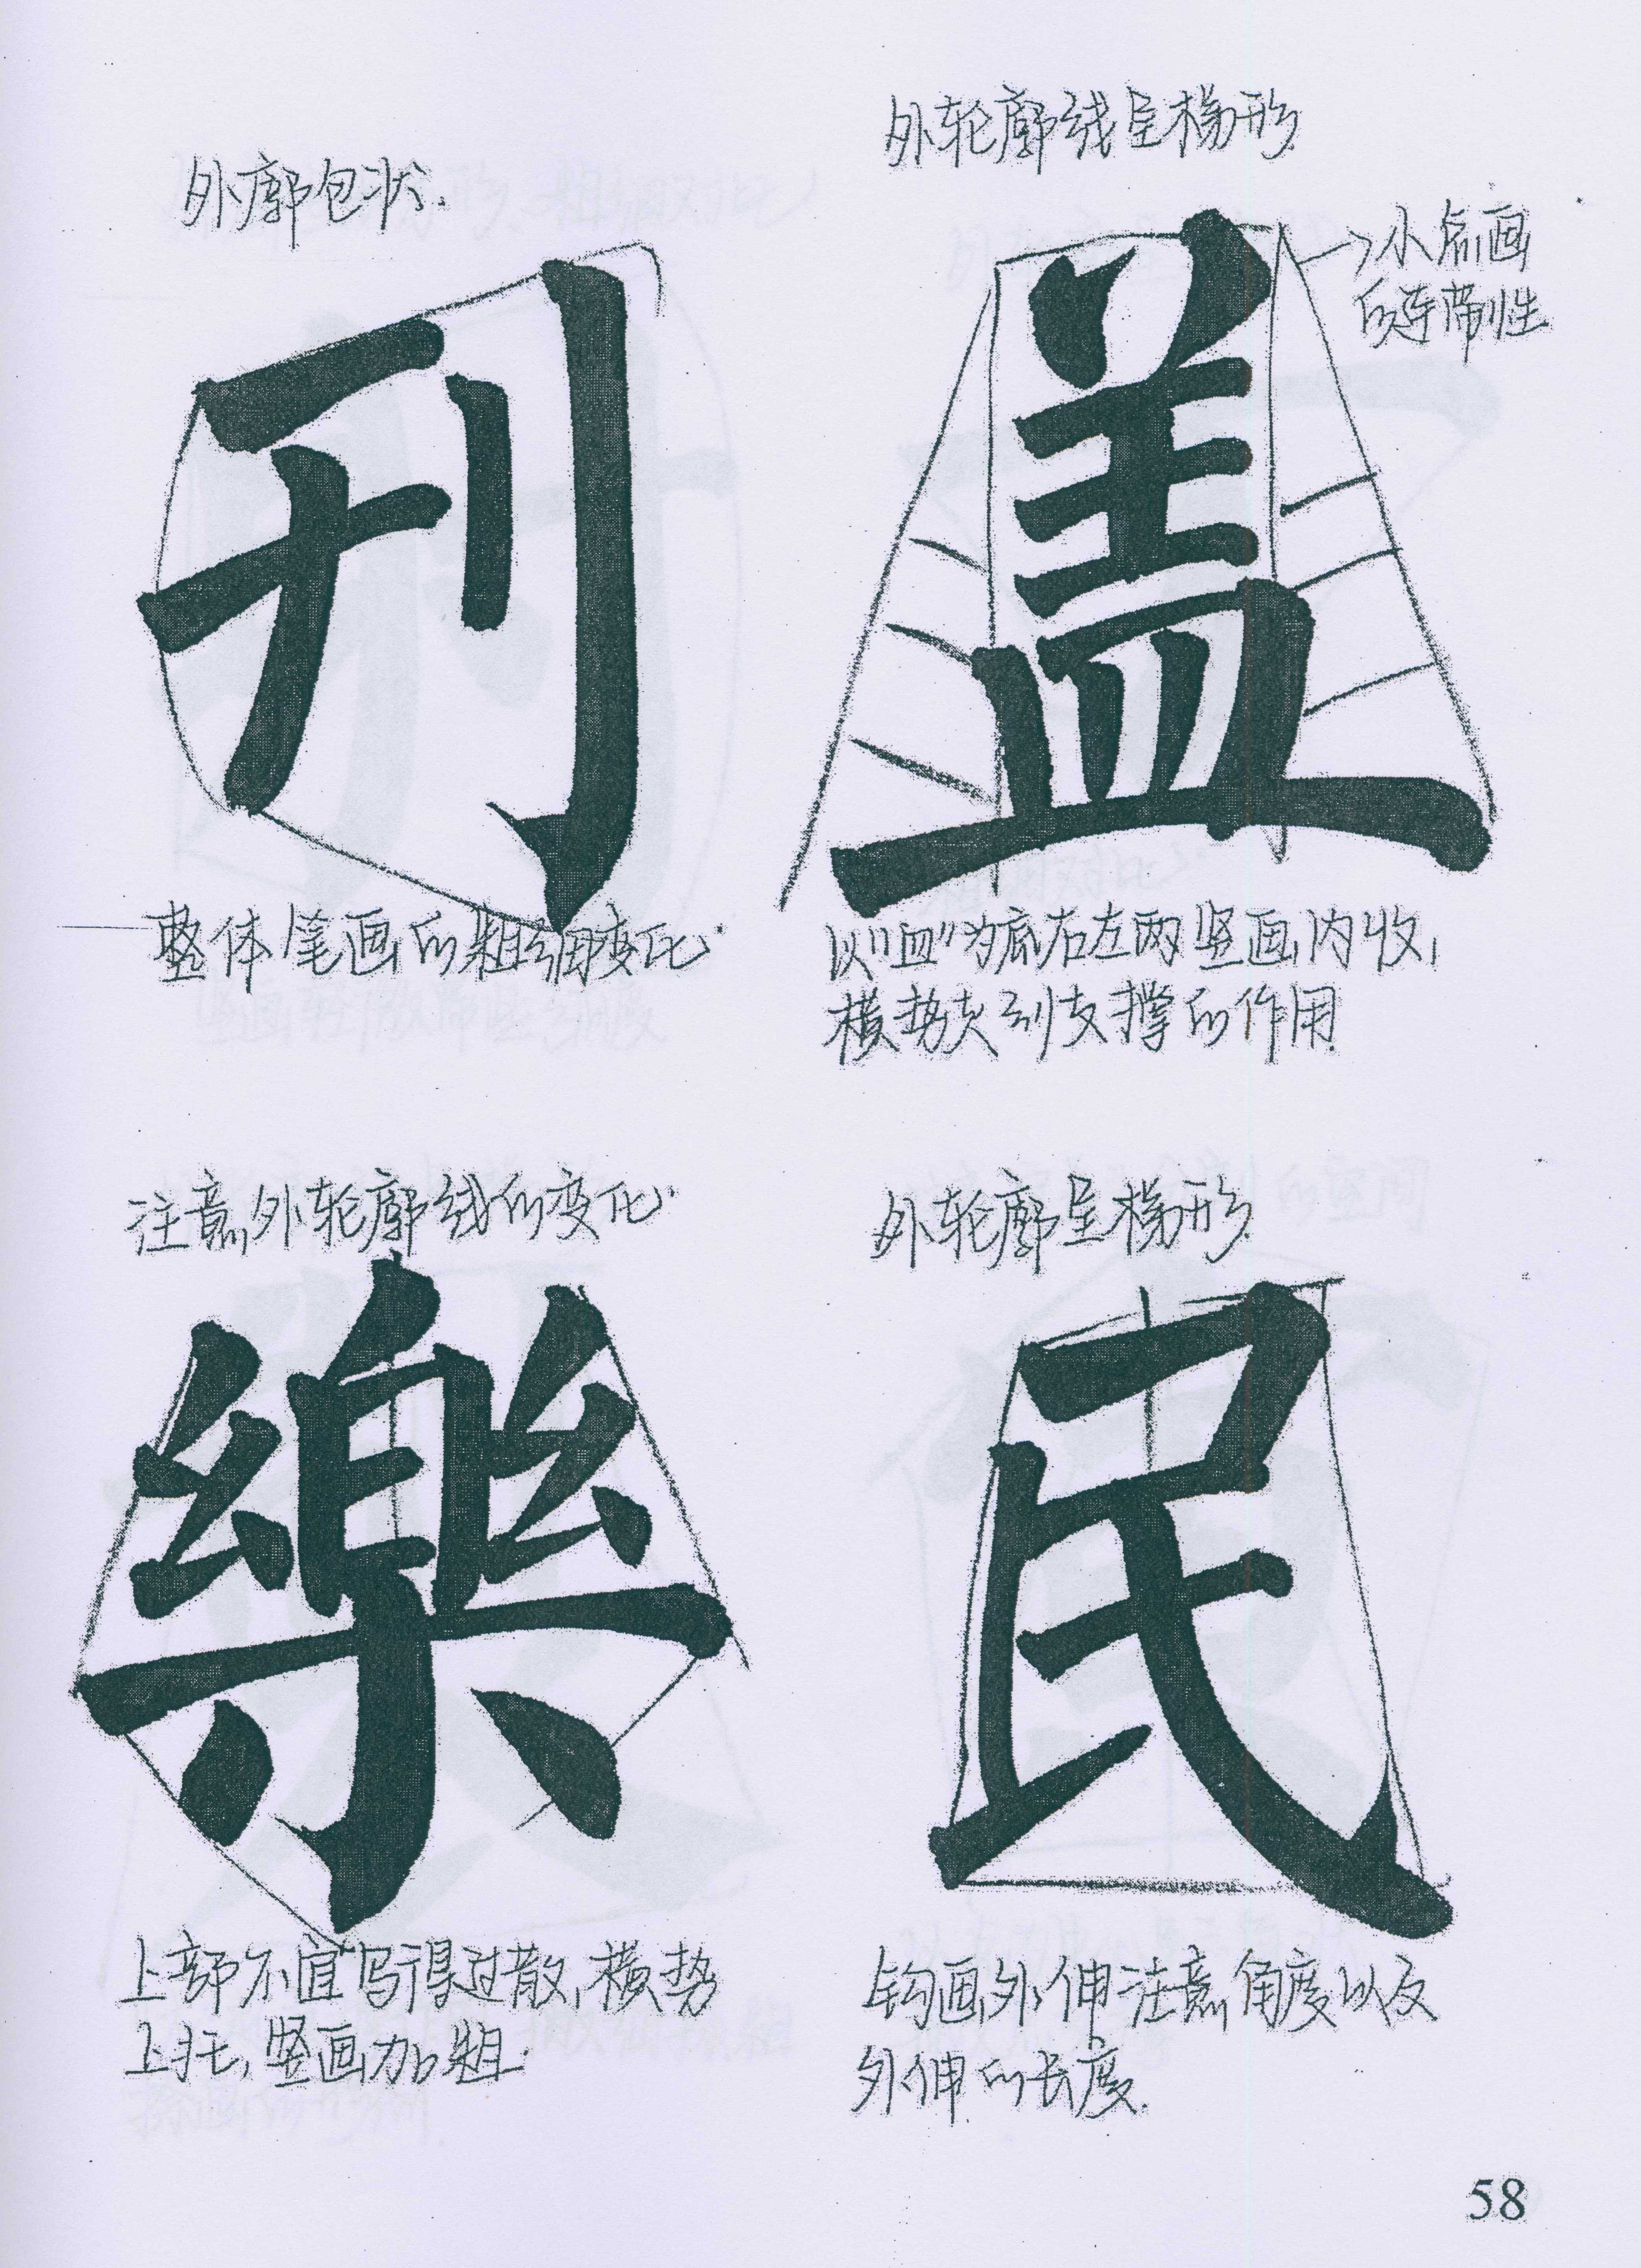 外廓包状.
刊
整体笔画的粗细变化.
外轮廓线呈梯形.
→小点画
的连带性
盖
以"皿"为底右左两竖画内收,
横势起到支撑的作用.
注意外轮廓线的变化.
樂
上部不宜写得过散,横势
上托,竖画加粗.
外轮廓呈梯形.
民
钩画外伸注意角度以及
外伸的长度.
58